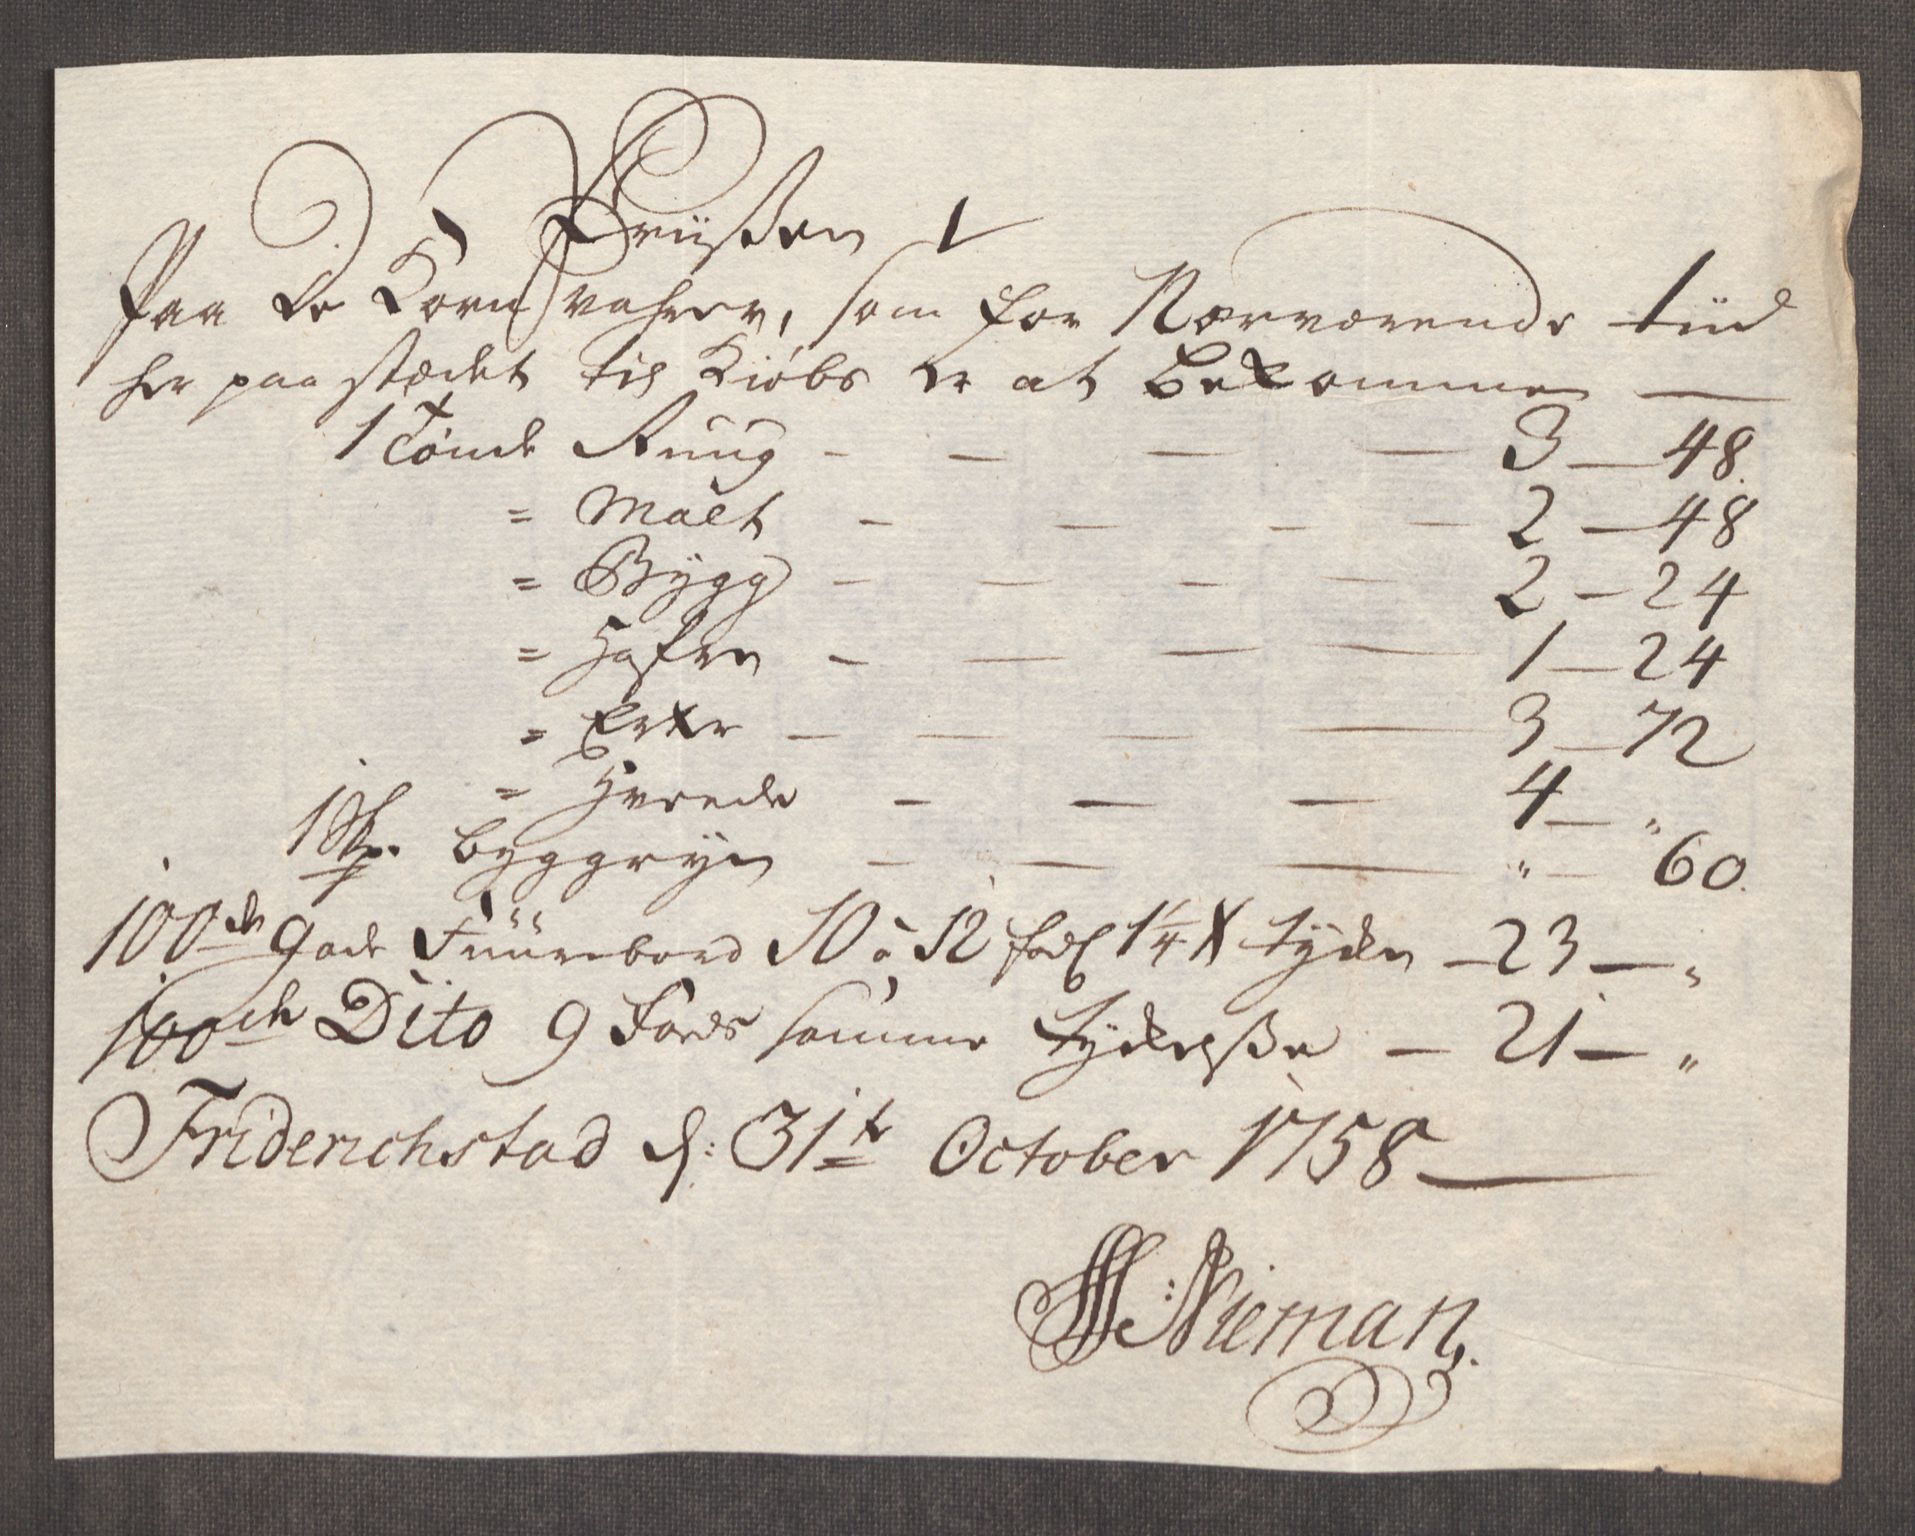 Priisen
Paa de Korn vahrer, som for Nærværende tiid
her paa stædet til Kiøbs er at bekomme —
1 Tønde Ruug - — — — 3 — 48.
= Malt - — - — 2 — 48
= Bÿgg - — - — 2 — 24
= Hafre - — — — 1 — 24
= Erter — — — — 3 — 72
= Hvede - — — 4 — "
1 Skp. Byggryn — — — " — 60.
100de gode Fuurebord 10 a 12 fods 1¼ tykke — 23 — "
100de Dito 9 Fods samme tykelße — 21 — "
Friderichstad d: 31te October 1758 —
Nieman.